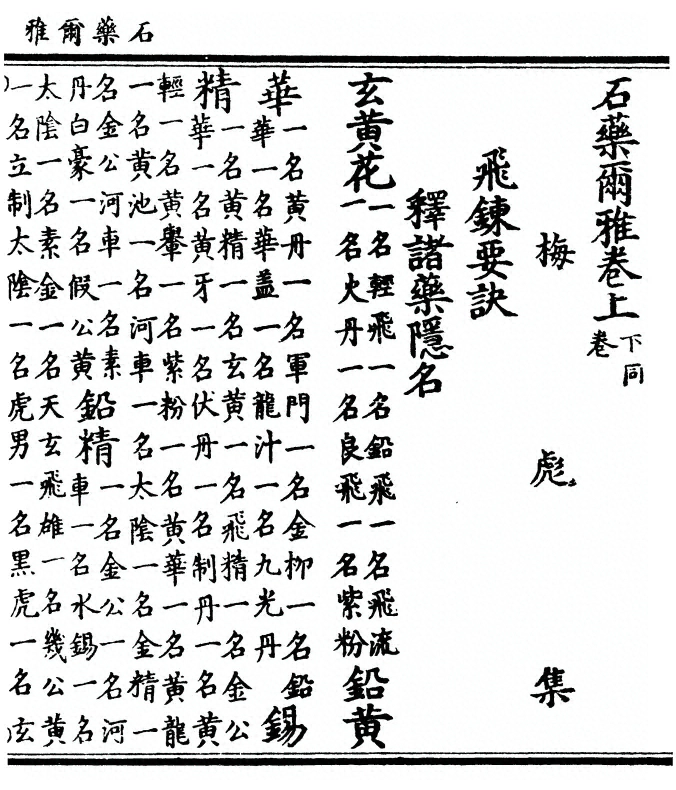 石藥爾雅
石藥爾雅卷上 下卷同
梅彪集
飛鍊要訣
釋諸藥隱名
玄黃花 一名輕飛一名鉛飛一名飛流
一名火丹一名良飛一名紫粉 鉛黃
華 一名黃丹一名軍門一名金柳一名鉛
華一名華蓋一名龍汁一名九光丹 錫
精 一名黃精一名玄黃一名飛精一名金公
華一名黃牙一名伏丹一名制丹一名黃
輕一名黃轝一名紫粉一名黃華一名黃龍
一名黃池一名河車一名太陰一名金精一
名金公河車一名素
丹白豪一名假公黃 鉛精 一名金公一名河
車一名水錫一名
太陰一名素金一名天玄飛雄一名幾公黃
一名立制太陰一名虎男一名黑虎一名玄